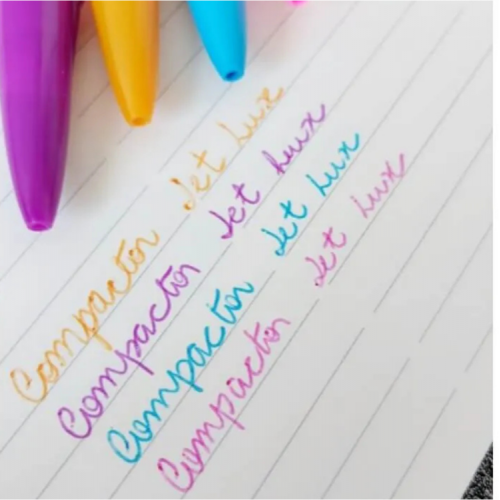 Compactor Jet Lux
Compactor Jet Lux
Compactor Jet Lux
Compactor Jet Lux